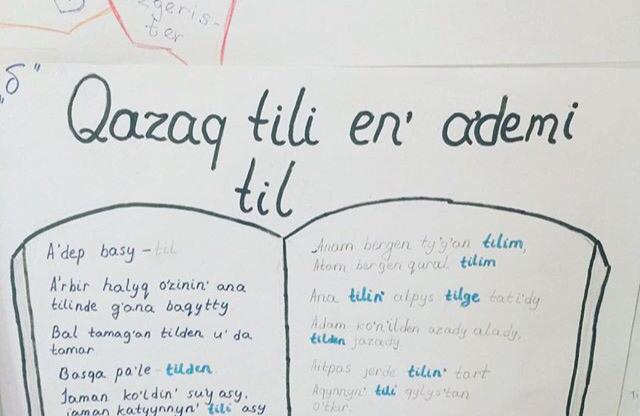 zgeris-
ter
„б"
Qazaq tili en' a'demi
til
A'dep basy - til
A'rbir halyq o'zinin' ana
tilinde g'ana baqytty
Bal tamag'an tilden u' da
tamar
Basqa pa'le - tilden
Jaman ko'ldin' suy asy,
jaman katyynnyn' tili asy
Anam bergen ty'g'an tilim,
Atam bergen qural tilim
Ana tilin' alpys tilge tati'dy
Adam ko'n'ilden azady alady,
tilden jazady
Aitpas jerde tilin' tart
Aqynnyn' tili qylys'tan
o'tkir.